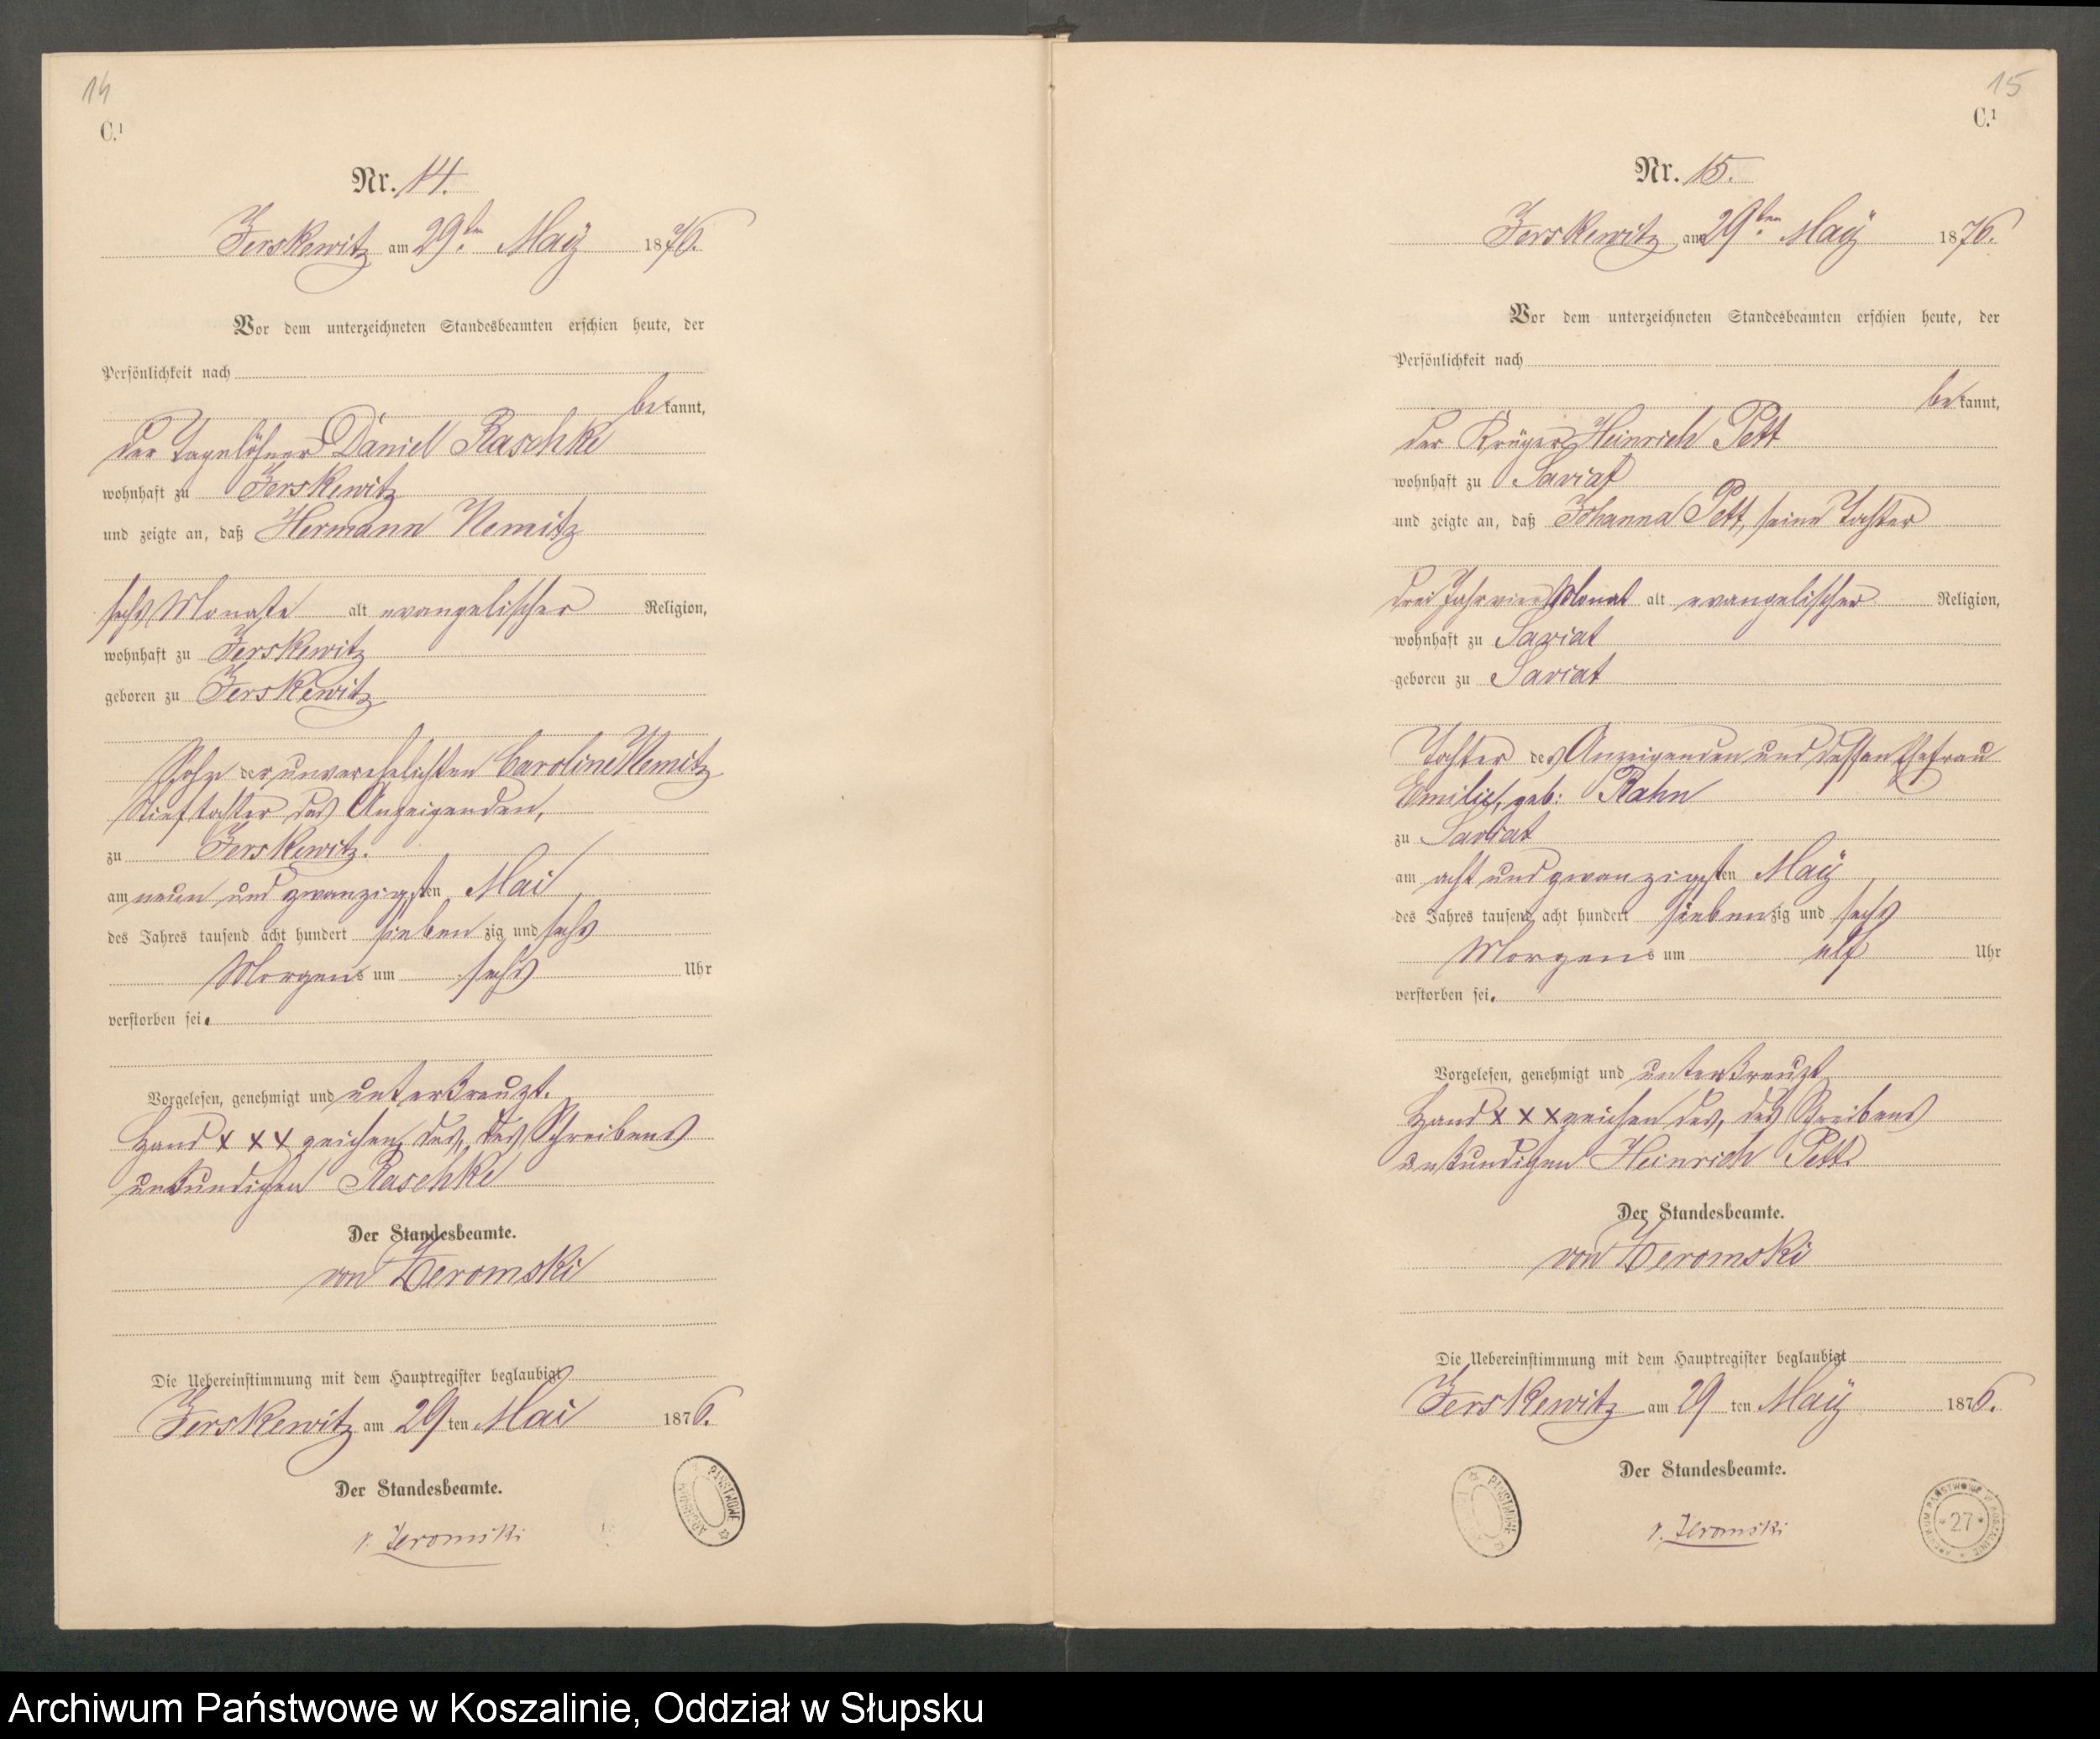 14
C.¹
Nr. 14.
Zerskewitz am 29ten Maÿ 1876.
Vor dem unterzeichneten Standesbeamten erschien heute, der
Persönlichkeit nach
bekannt,
der Tagelöhner Daniel Raschke
wohnhaft zu Zerskewitz
und zeigte an, daß Hermann Nemitz
sechs Monate alt evangelischer Religion,
wohnhaft zu Zerskewitz
geboren zu Zerskewitz
Sohn der unverehelichten Caroline Nemitz
Stieftochter des Anzeigenden,
zu Zerskewitz.
am neun und zwanzigsten Mai
des Jahres tausend acht hundert siebenzig und sechs
Morgens um sechs Uhr
verstorben sei.
Vorgelesen, genehmigt und unterkreuzt.
Hand x x x zeichen des, des Schreibens
unkundigen Raschke
Der Standesbeamte.
von Zeromski
Die Uebereinstimmung mit dem Hauptregister beglaubigt
Zerskewitz am 29 ten Mai 1876.
Der Standesbeamte.
v. Zeromski
15
C.¹
Nr. 15.
Zerskewitz am 29ten Maÿ 1876.
Vor dem unterzeichneten Standesbeamten erschien heute, der
Persönlichkeit nach
bekannt,
der Krüger Heinrich Pett
wohnhaft zu Saviat
und zeigte an, daß Johanna Pett, seine Tochter
drei Jahr vier Monat alt evangelischer Religion,
wohnhaft zu Saviat
geboren zu Saviat
Tochter des Anzeigenden und dessen Ehefrau
Emilie, geb: Rahn
zu Saviat
am acht und zwanzigsten Maÿ
des Jahres tausend acht hundert siebenzig und sechs
Morgens um elf Uhr
verstorben sei.
Vorgelesen, genehmigt und unterkreuzt
Hand x x x zeichen des, des Schreibens
unkundigen Heinrich Pett.
Der Standesbeamte.
von Zeromski
Die Uebereinstimmung mit dem Hauptregister beglaubigt
Zerskewitz am 29 ten Maÿ 1876.
Der Standesbeamte.
v. Zeromski
ARCHIWUM PAŃSTWOWE
PAŃSTWOWE
ARCHIWUM PAŃSTWOWE W KOSZALINIE
* 27 *
Archiwum Państwowe w Koszalinie, Oddział w Słupsku